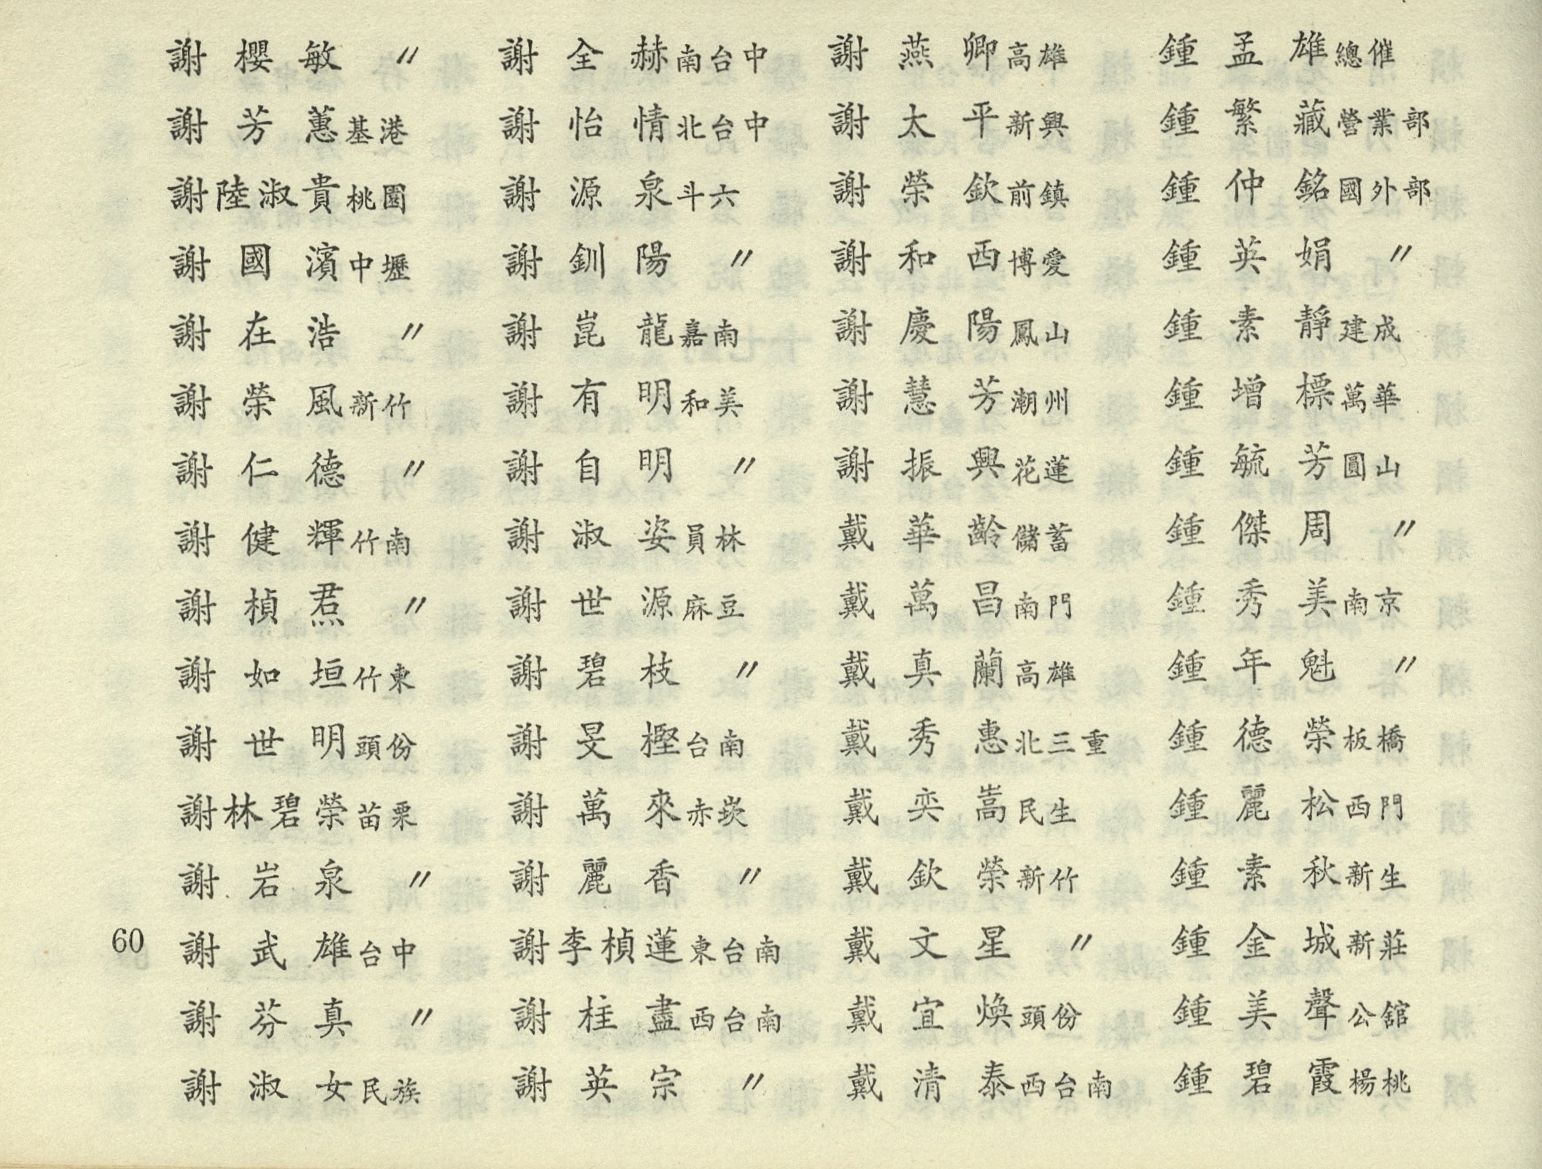 謝櫻敏 〃
謝芳蕙 基港
謝陸淑貴 桃園
謝國濱 中壢
謝在浩 〃
謝榮風 新竹
謝仁德 〃
謝健輝 竹南
謝楨焄 〃
謝如垣 竹東
謝世明 頭份
謝林碧榮 苗栗
謝岩泉 〃
謝武雄 台中
謝芬真 〃
謝淑女 民族
謝全赫 南台中
謝怡情 北台中
謝源泉 斗六
謝釧陽 〃
謝崑龍 嘉南
謝有明 和美
謝自明 〃
謝淑姿 員林
謝世源 麻豆
謝碧枝 〃
謝旻樫 台南
謝萬來 赤崁
謝麗香 〃
謝李楨蓮 東台南
謝柱盡 西台南
謝英宗 〃
謝燕卿 高雄
謝太平 新興
謝榮欽 前鎮
謝和西 博愛
謝慶陽 鳳山
謝慧芳 潮州
謝振興 花蓮
戴華齡 儲蓄
戴萬昌 南門
戴真蘭 高雄
戴秀惠 北三重
戴奕嵩 民生
戴欽榮 新竹
戴文星 〃
戴宜煥 頭份
戴清泰 西台南
鍾孟雄 總催
鍾繁藏 營業部
鍾仲銘 國外部
鍾英娟 〃
鍾素靜 建成
鍾增標 萬華
鍾毓芳 圓山
鍾傑周 〃
鍾秀美 南京
鍾年魁 〃
鍾德榮 板橋
鍾麗松 西門
鍾素秋 新生
鍾金城 新莊
鍾美聲 公舘
鍾碧霞 楊桃
60